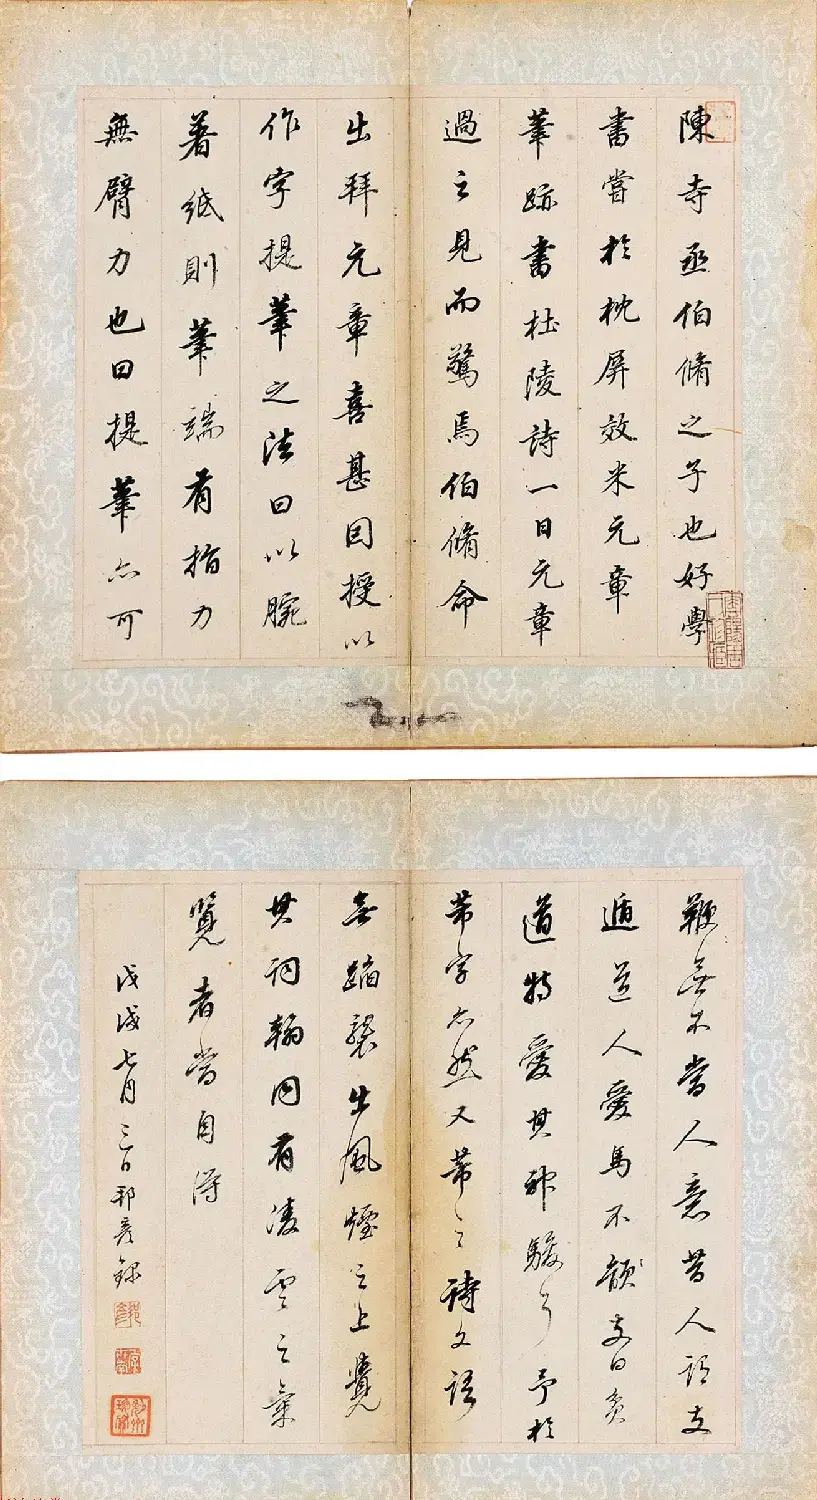 陳寺丞伯脩之子也好學
書嘗於枕屏效米元章
筆跡書杜陵詩一日元章
過之見而驚焉伯脩命
出拜元章喜甚因授以
作字提筆之法曰以腕
著紙則筆端有指力
無臂力也曰提筆亦可
鞭無不當人意昔人謂支
遁道人愛馬不韻支曰貧
道特愛其神駿耳予於
芾字亦然又芾之詩文語
無蹈襲出風煙之上覺
其詞翰同有凌雲之氣
覽者當自得
戊戌七月三日邦彥錄